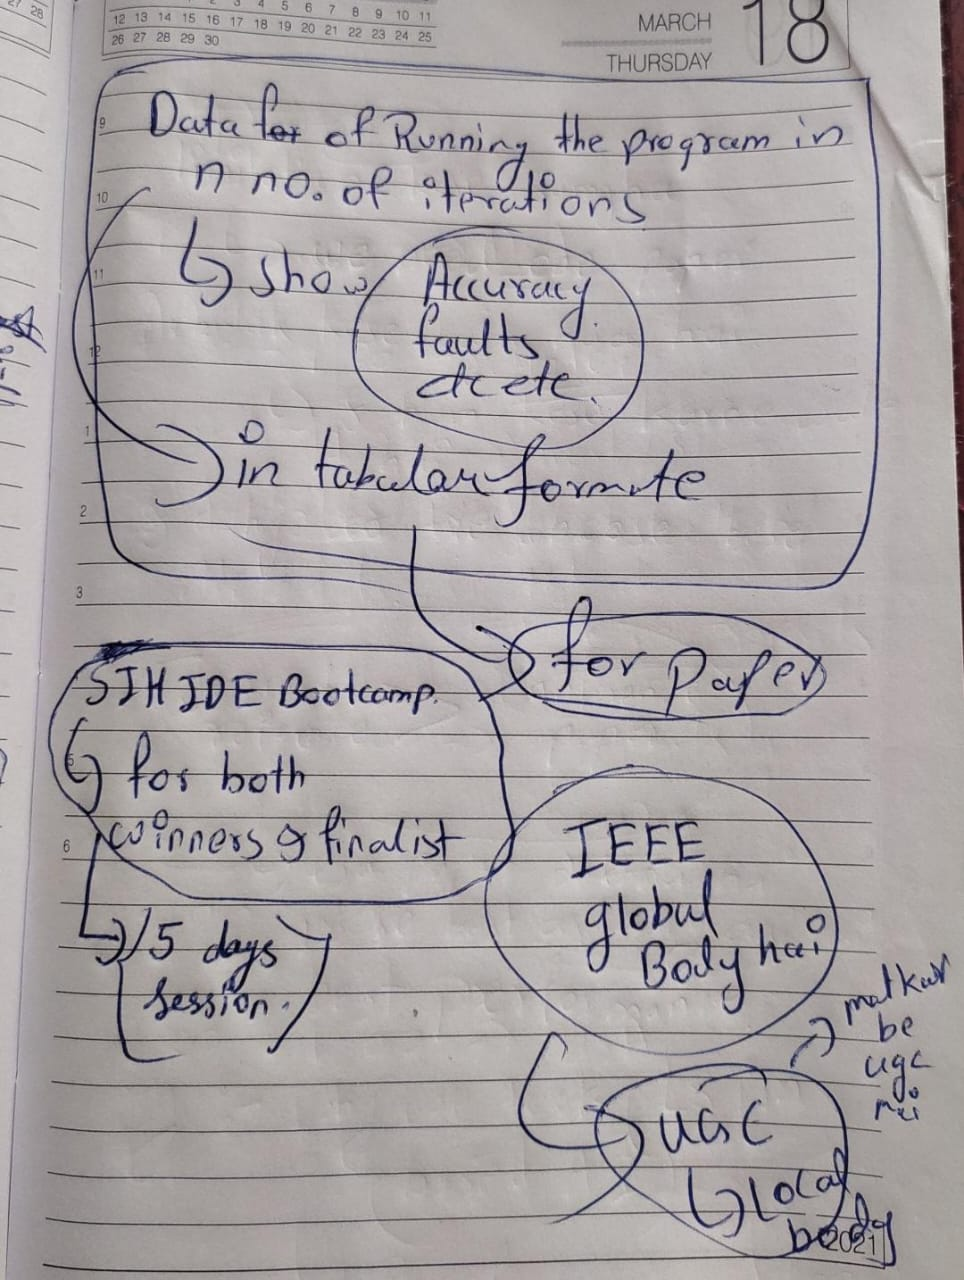 27 28
2 3 4 5 6 7 8 9 10 11
12 13 14 15 16 17 18 19 20 21 22 23 24 25
26 27 28 29 30
MARCH
THURSDAY
18
9
Data for of Running the program in
10
n no. of iterations
11
show Accuracy
faults
12
etc etc.
1
in tabular formate
2
3
for Paper
SIH IDE Bootcamp.
for both
6
winners & finalist
IEEE
global
Body hai
5 days
session.
mat kar
be
ugc
UGC
Local
body
2021